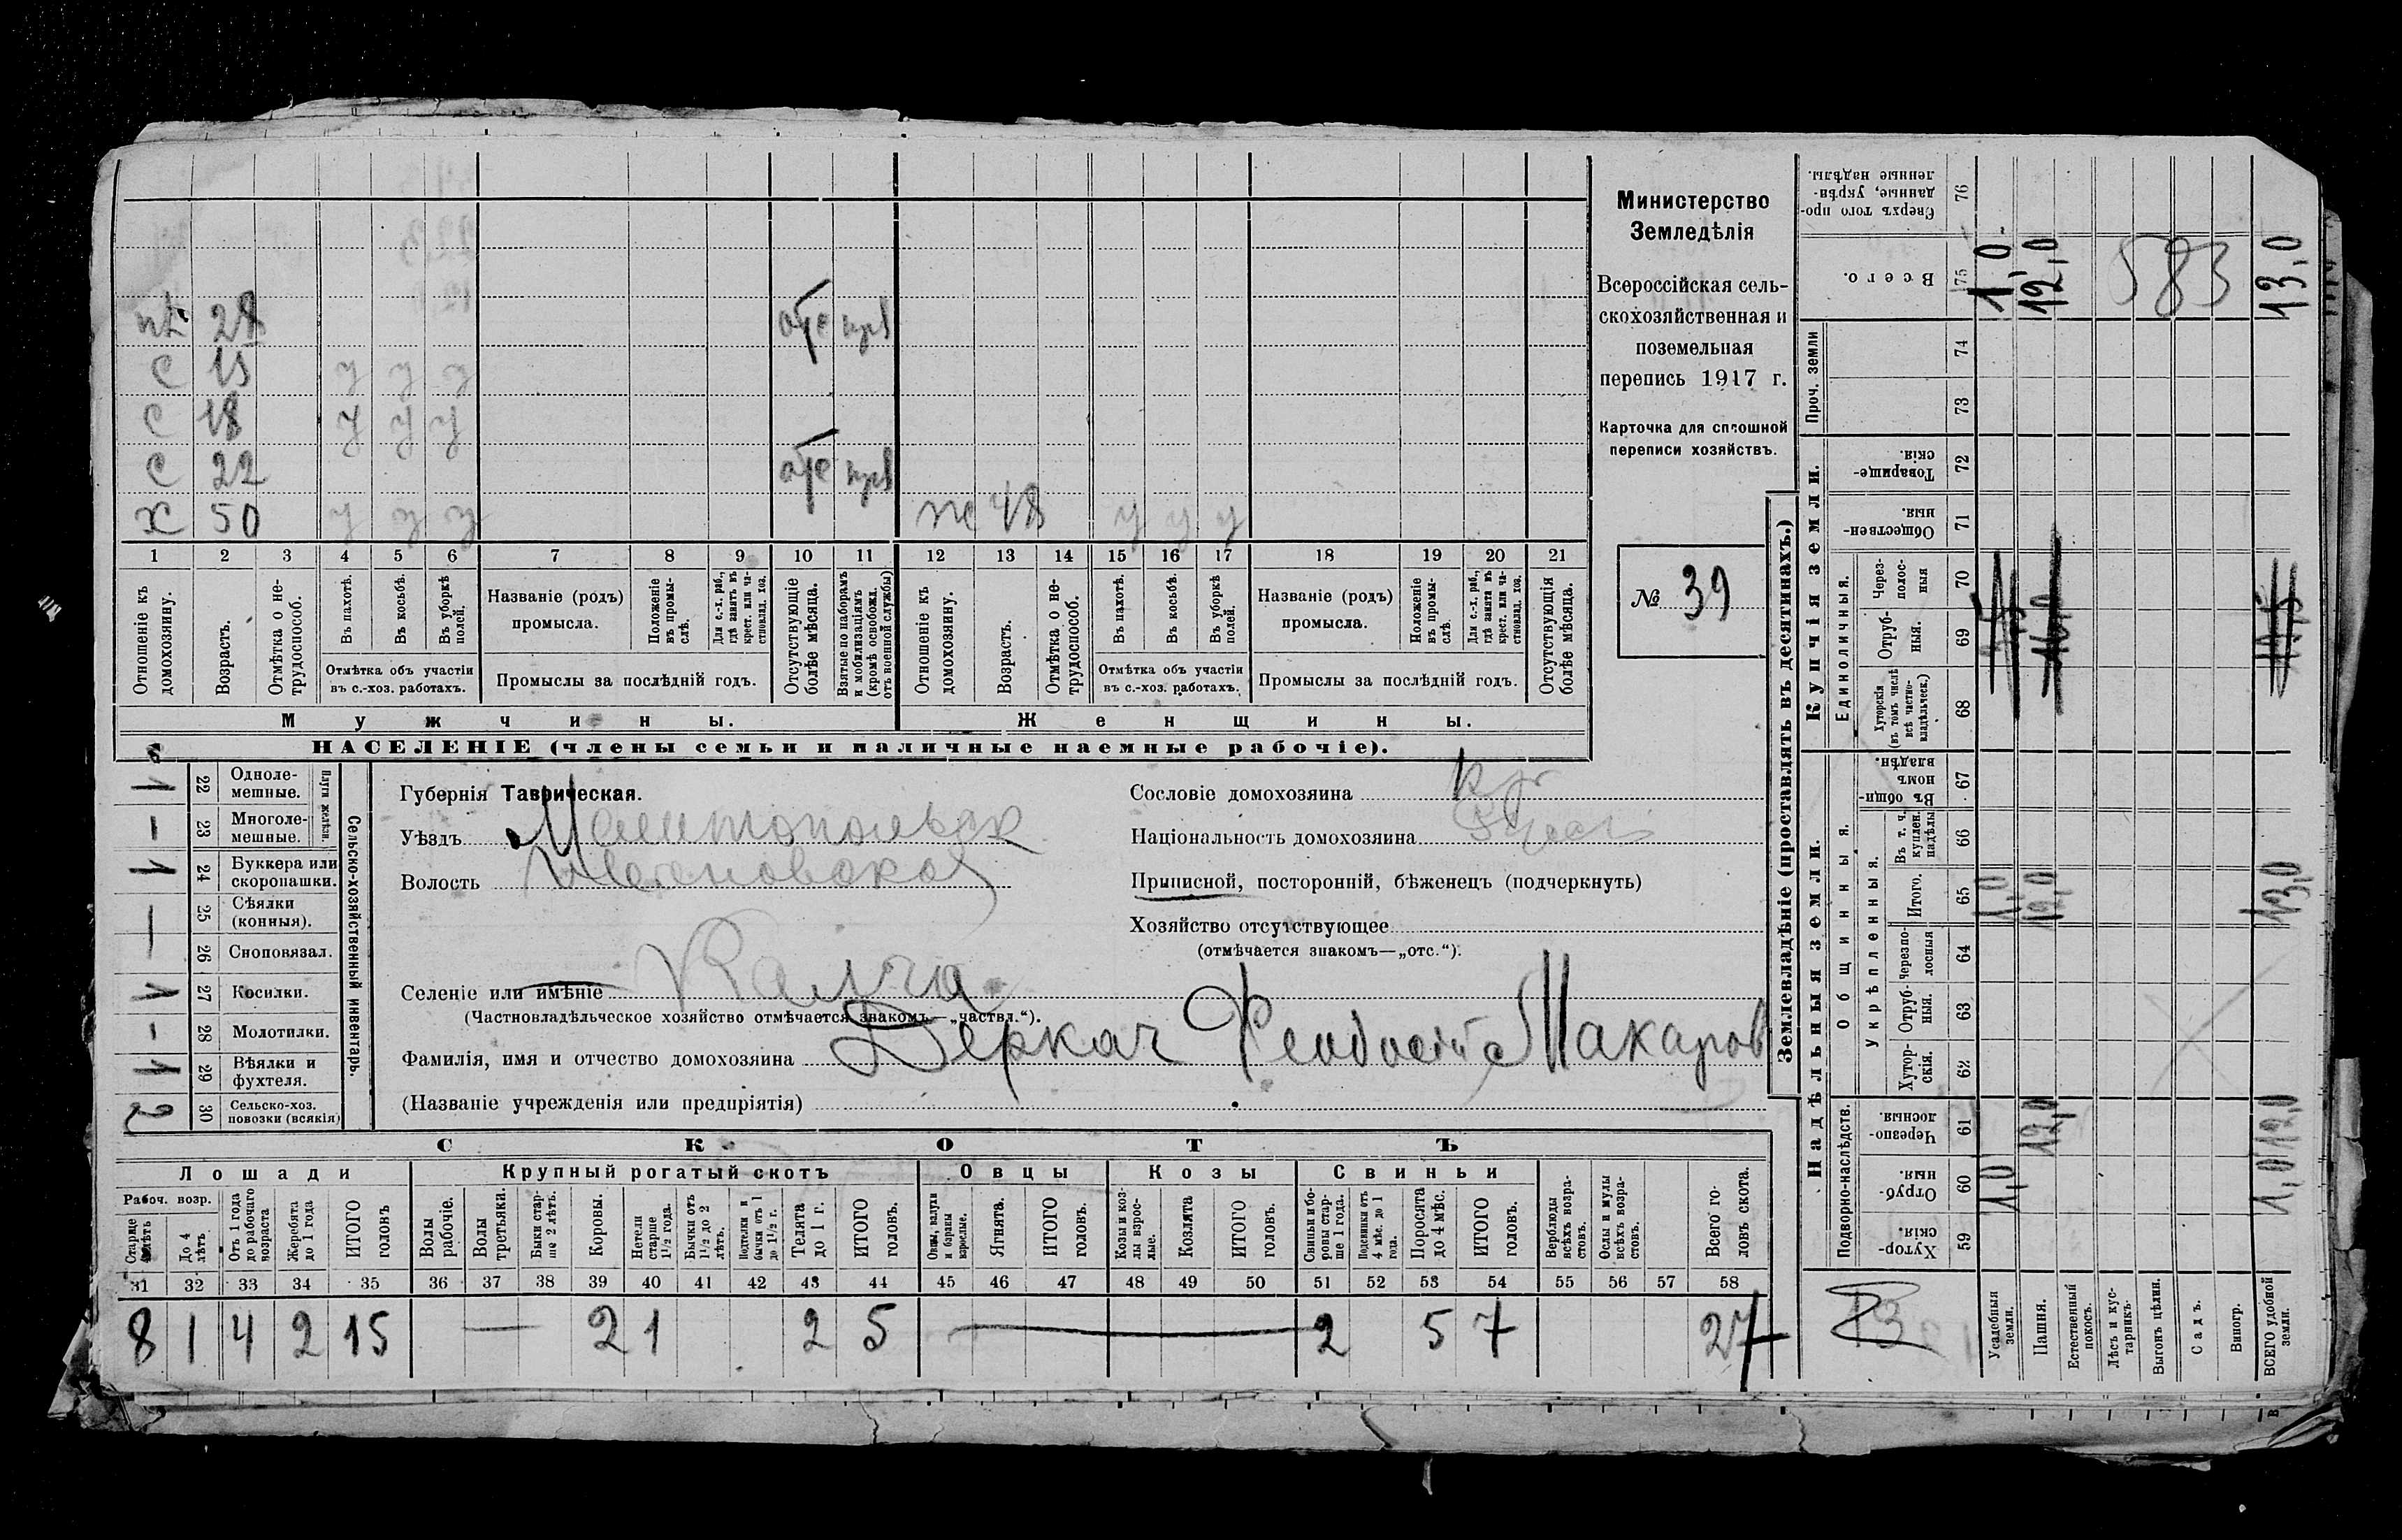 пл. 28 отс приз
с 15 у у у
с 18 у у у
с 22 отс приз
х 50 у у у ж 48 у у у
1 2 3 4 5 6 7 8 9 10 11 12 13 14 15 16 17 18 19 20 21
Отношеніе къ домохозяину.
Возрастъ.
Отмѣтка о нетрудоспособ.
Въ пахотѣ.
Въ косьбѣ.
Въ уборкѣ полей.
Отмѣтка объ участіи
въ с.-хоз. работахъ.
Названіе (родъ)
промысла.
Положеніе въ промыслѣ.
Для с.-х. раб., гдѣ занятъ въ крест. или частновлад. хоз.
Промыслы за послѣдній годъ.
Отсутствующіе болѣе мѣсяца.
Взятые по наборамъ и мобилизаціямъ (кромѣ освобожд. отъ военной службы)
Отношеніе къ домохозяину.
Возрастъ.
Отмѣтка о нетрудоспособ.
Въ пахотѣ.
Въ косьбѣ.
Въ уборкѣ полей.
Отмѣтка объ участіи
въ с.-хоз. работахъ.
Названіе (родъ)
промысла.
Положеніе въ промыслѣ.
Для с.-х. раб., гдѣ занята въ крест. или частновлад. хоз.
Промыслы за послѣдній годъ.
Отсутствующія болѣе мѣсяца.
Мужчины.
Женщины.
НАСЕЛЕНІЕ (члены семьи и наличные наемные рабочіе).
Министерство
Земледѣлія
Всероссійская сель-
скохозяйственная и
поземельная
перепись 1917 г.
Карточка для сплошной
переписи хозяйствъ.
№ 39
Сельско-хозяйственный инвентарь.
Плуги желѣзн.
1 22 Однолемешные.
— 23 Многолемешные.
1 24 Буккера или скоропашки.
— 25 Сѣялки (конныя).
26 Сноповязал.
1 27 Косилки.
- 28 Молотилки.
1 29 Вѣялки и фухтеля.
2 30 Сельско-хоз. повозки (всякія)
Губернія Таврическая.
Уѣздъ Мелитопольск
Волость
Селеніе или имѣніе Калга
(Частновладѣльческое хозяйство отмѣчается знакомъ—„частвл.“).
Фамилія, имя и отчество домохозяина Деркач Феодосій Макаров
(Названіе учрежденія или предпріятія)
Сословіе домохозяина кр
Національность домохозяина
Приписной, посторонній, бѣженецъ (подчеркнуть)
Хозяйство отсутствующее
(отмѣчается знакомъ—„отс.“).
СКОТЪ
Лошади
Крупный рогатый скотъ
Овцы
Козы
Свиньи
Рабоч. возр.
Старше 4 лѣтъ
До 4 лѣтъ.
Отъ 1 года до рабочаго возраста
Жеребята до 1 года
ИТОГО головъ
Волы рабочіе.
Волы третьяки.
Быки старше 2 лѣтъ.
Коровы.
Нетели старше 1½ года.
Бычки отъ 1½ до 2 лѣтъ.
Подтелки и бычки отъ 1 до 1½ г.
Телята до 1 г.
ИТОГО головъ.
Овцы, валухи и бараны взрослые.
Ягнята.
ИТОГО головъ.
Козы и козлы взрослые.
Козлята
ИТОГО головъ.
Свиньи и боровы старше 1 года.
Подсвинки отъ 4 мѣс. до 1 года.
Поросята до 4 мѣс.
ИТОГО головъ.
Верблюды всѣхъ возрастовъ.
Ослы и мулы всѣхъ возрастовъ.
Всего головъ скота.
31 32 33 34 35 36 37 38 39 40 41 42 43 44 45 46 47 48 49 50 51 52 53 54 55 56 57 58
8 1 4 2 15 — 2 1 2 5 — 2 5 7 27
Землевладѣніе (проставлять въ десятинахъ.)
Купчія земли.
Надѣльныя земли.
Сверхъ того проданные, укрѣпленные надѣлы. 76
Всего. 75 1,0 12,0 583 13,0
Проч. земли 74
73
Товарищескія. 72
Общественныя. 71
Единоличныя.
Черезполосныя 70
Отрубныя. 69
Хуторскія (въ томъ числѣ всѣ частновладѣльческ.) 68
Общинныя.
Въ общинномъ владѣн. 67
Укрѣпленныя.
Въ т. ч. куплен. надѣлы 66
Итого. 65 1,0 12,0 13,0
Черезполосныя 64
Отрубныя. 63
Хуторскія. 62
Подворно-наслѣдств.
Черезполосныя. 61 12,0 12,0
Отрубныя. 60 1,0 1,0
Хуторскія. 59
Усадебныя земли.
Пашня.
Естественный покосъ.
Лѣсъ и кустарникъ.
Выгонъ цѣлин.
Садъ.
Виногр.
ВСЕГО удобной земли.